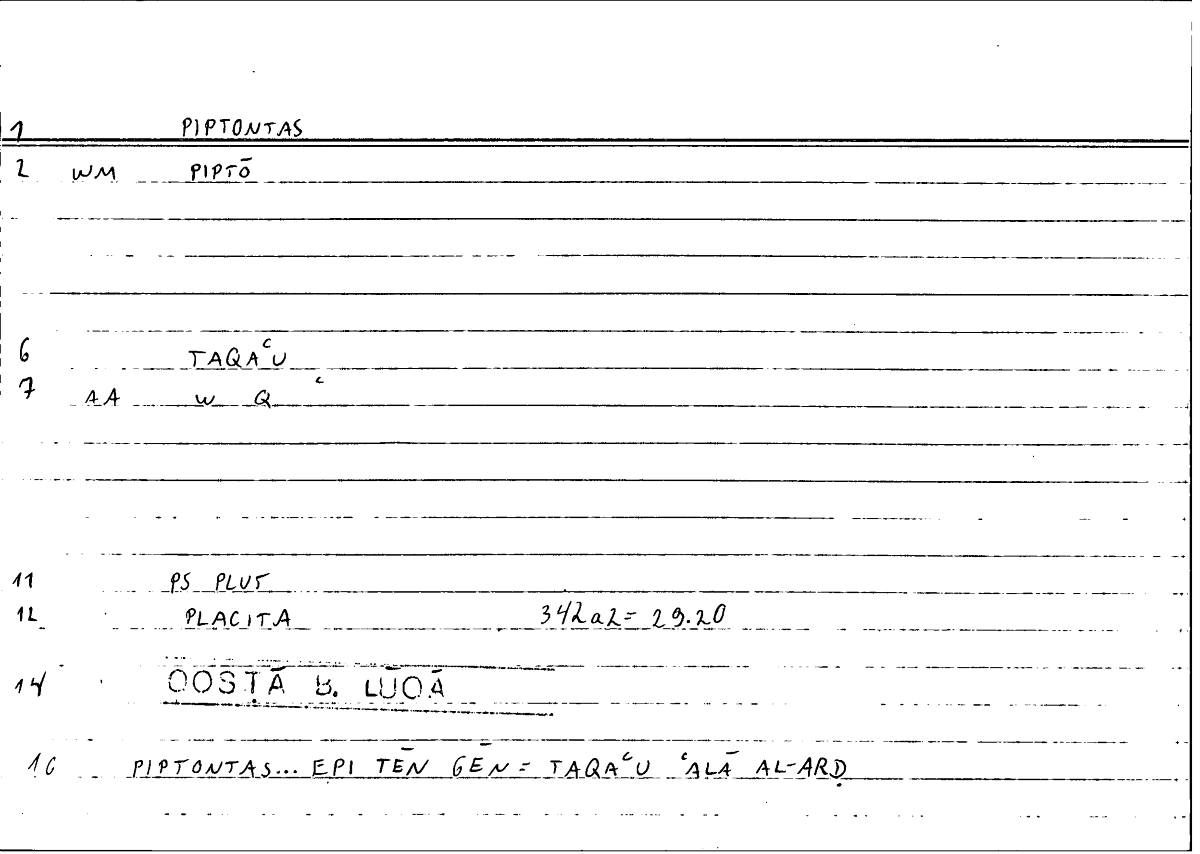 1 PIPTONTAS
2 WM PIPTŌ
6 TAQAʿU
7 AA W Q ʿ
11 PS PLUT
12 PLACITA 342a2= 29.20
14 QOSṬĀ B. LŪQĀ
16 PIPTONTAS... EPI TĒN GĒN = TAQAʿU ʿALĀ AL-ARḌ